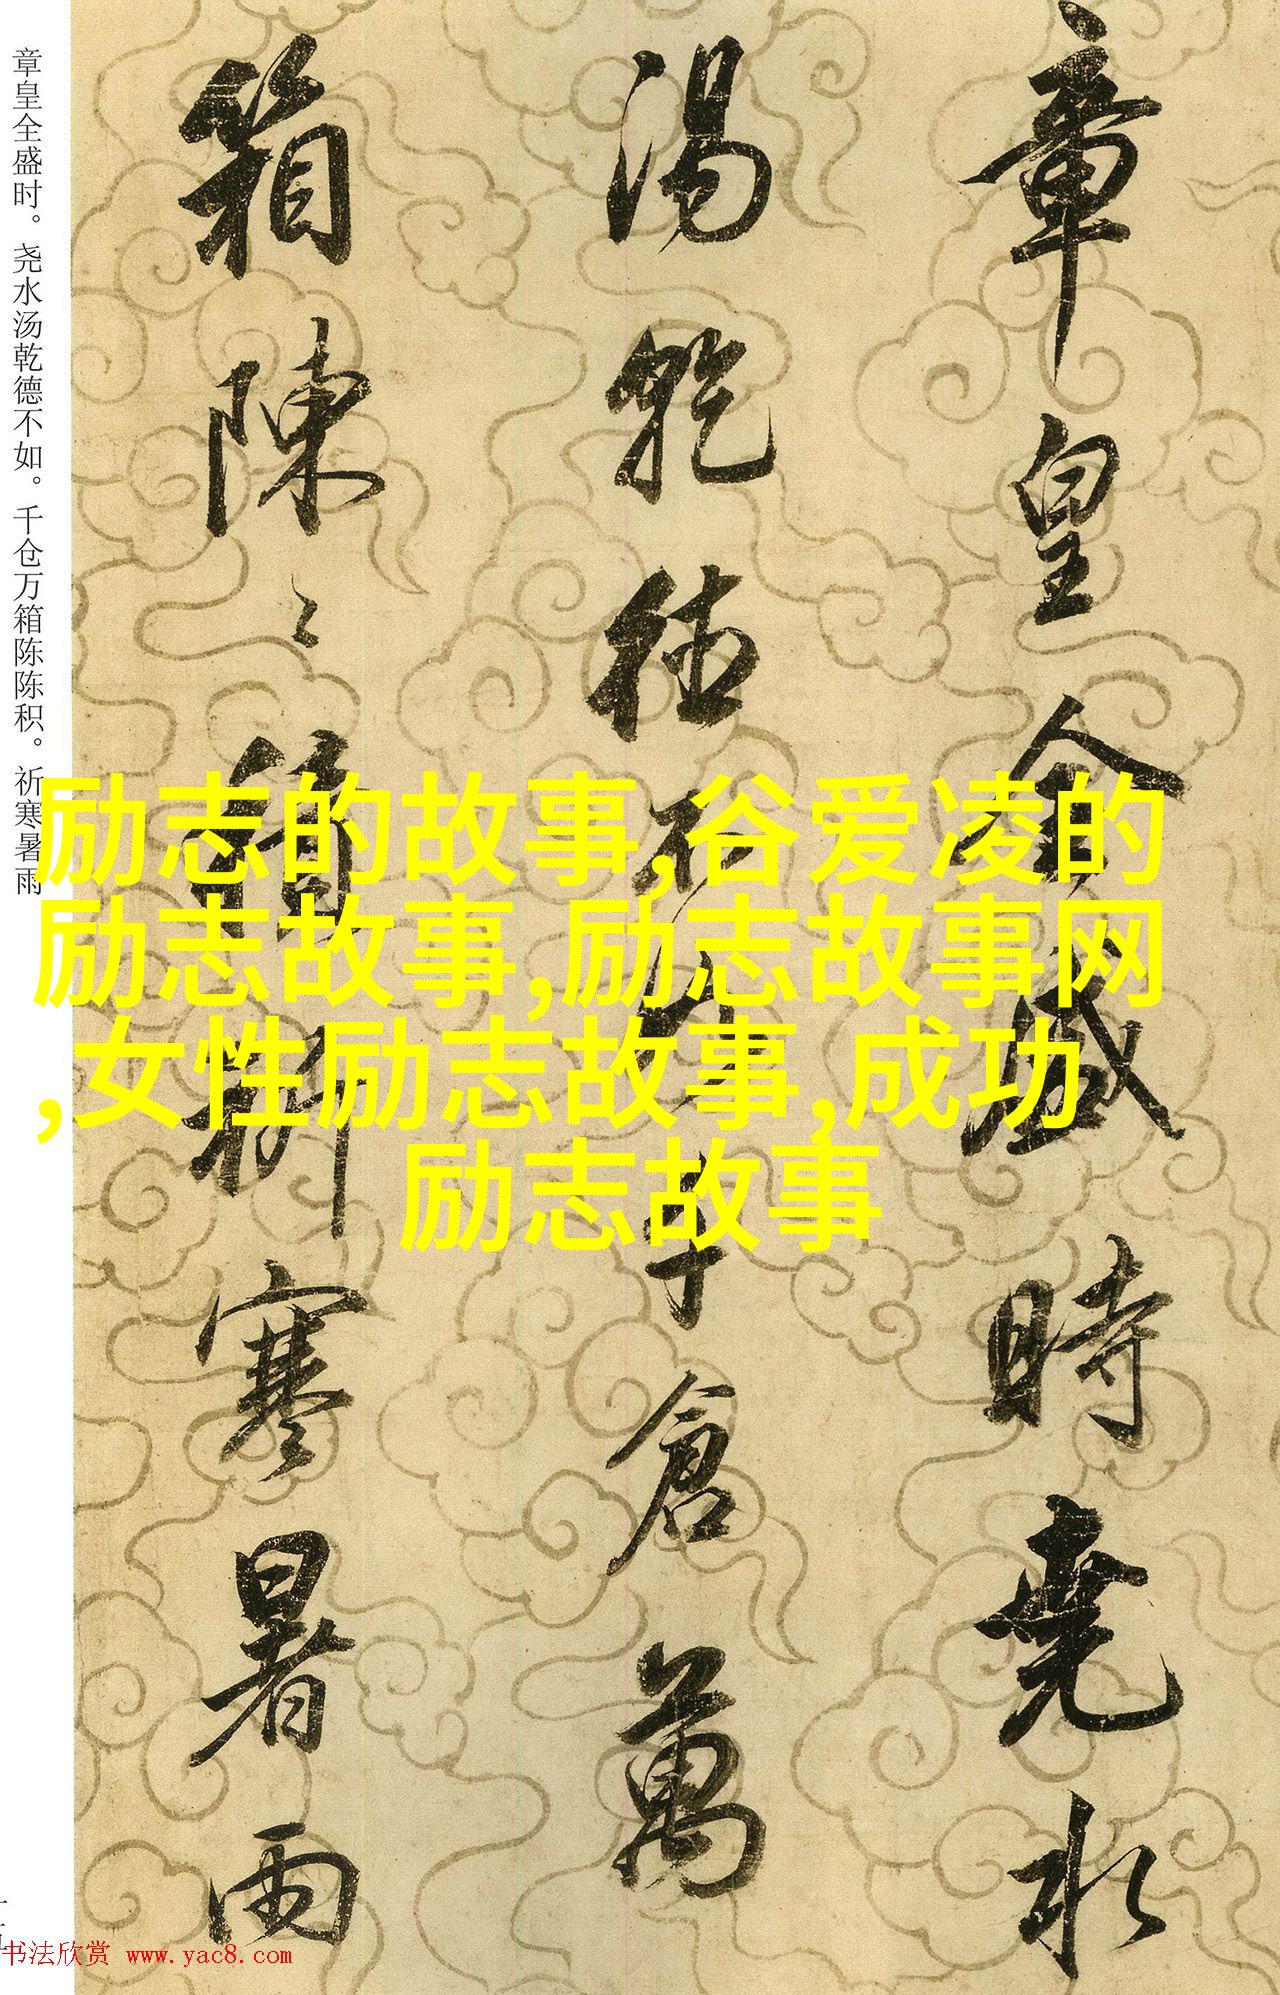 章皇全盛时。尧水汤乾德不如。千仓万箱陈陈积。祈寒暑雨
章皇全盛時堯水
湯乹德不如千倉萬
箱陳〻積祈寒暑雨
励志的故事,谷爱凌的
励志故事,励志故事网
,女性励志故事,成功
励志故事
书法欣赏 www.yac8.com